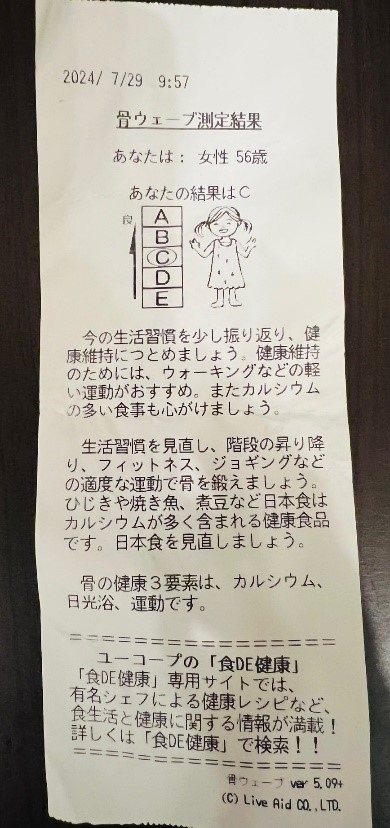 2024/ 7/29 9:57
骨ウェーブ測定結果
あなたは： 女性 56歳
あなたの結果はC
良
A
B
C
D
E
今の生活習慣を少し振り返り、健
康維持につとめましょう。健康維持
のためには、ウォーキングなどの軽
い運動がおすすめ。またカルシウム
の多い食事も心がけましょう。
生活習慣を見直し、階段の昇り降
り、フィットネス、ジョギングなど
の適度な運動で骨を鍛えましょう。
ひじきや焼き魚、煮豆など日本食は
カルシウムが多く含まれる健康食品
です。日本食を見直しましょう。
骨の健康３要素は、カルシウム、
日光浴、運動です。
ユーコープの「食DE健康」
「食DE健康」専用サイトでは、
有名シェフによる健康レシピなど、
食生活と健康に関する情報が満載！
詳しくは「食DE健康」で検索！！
骨ウェーブ ver 5.09+
(C) Live Aid CO.,LTD.